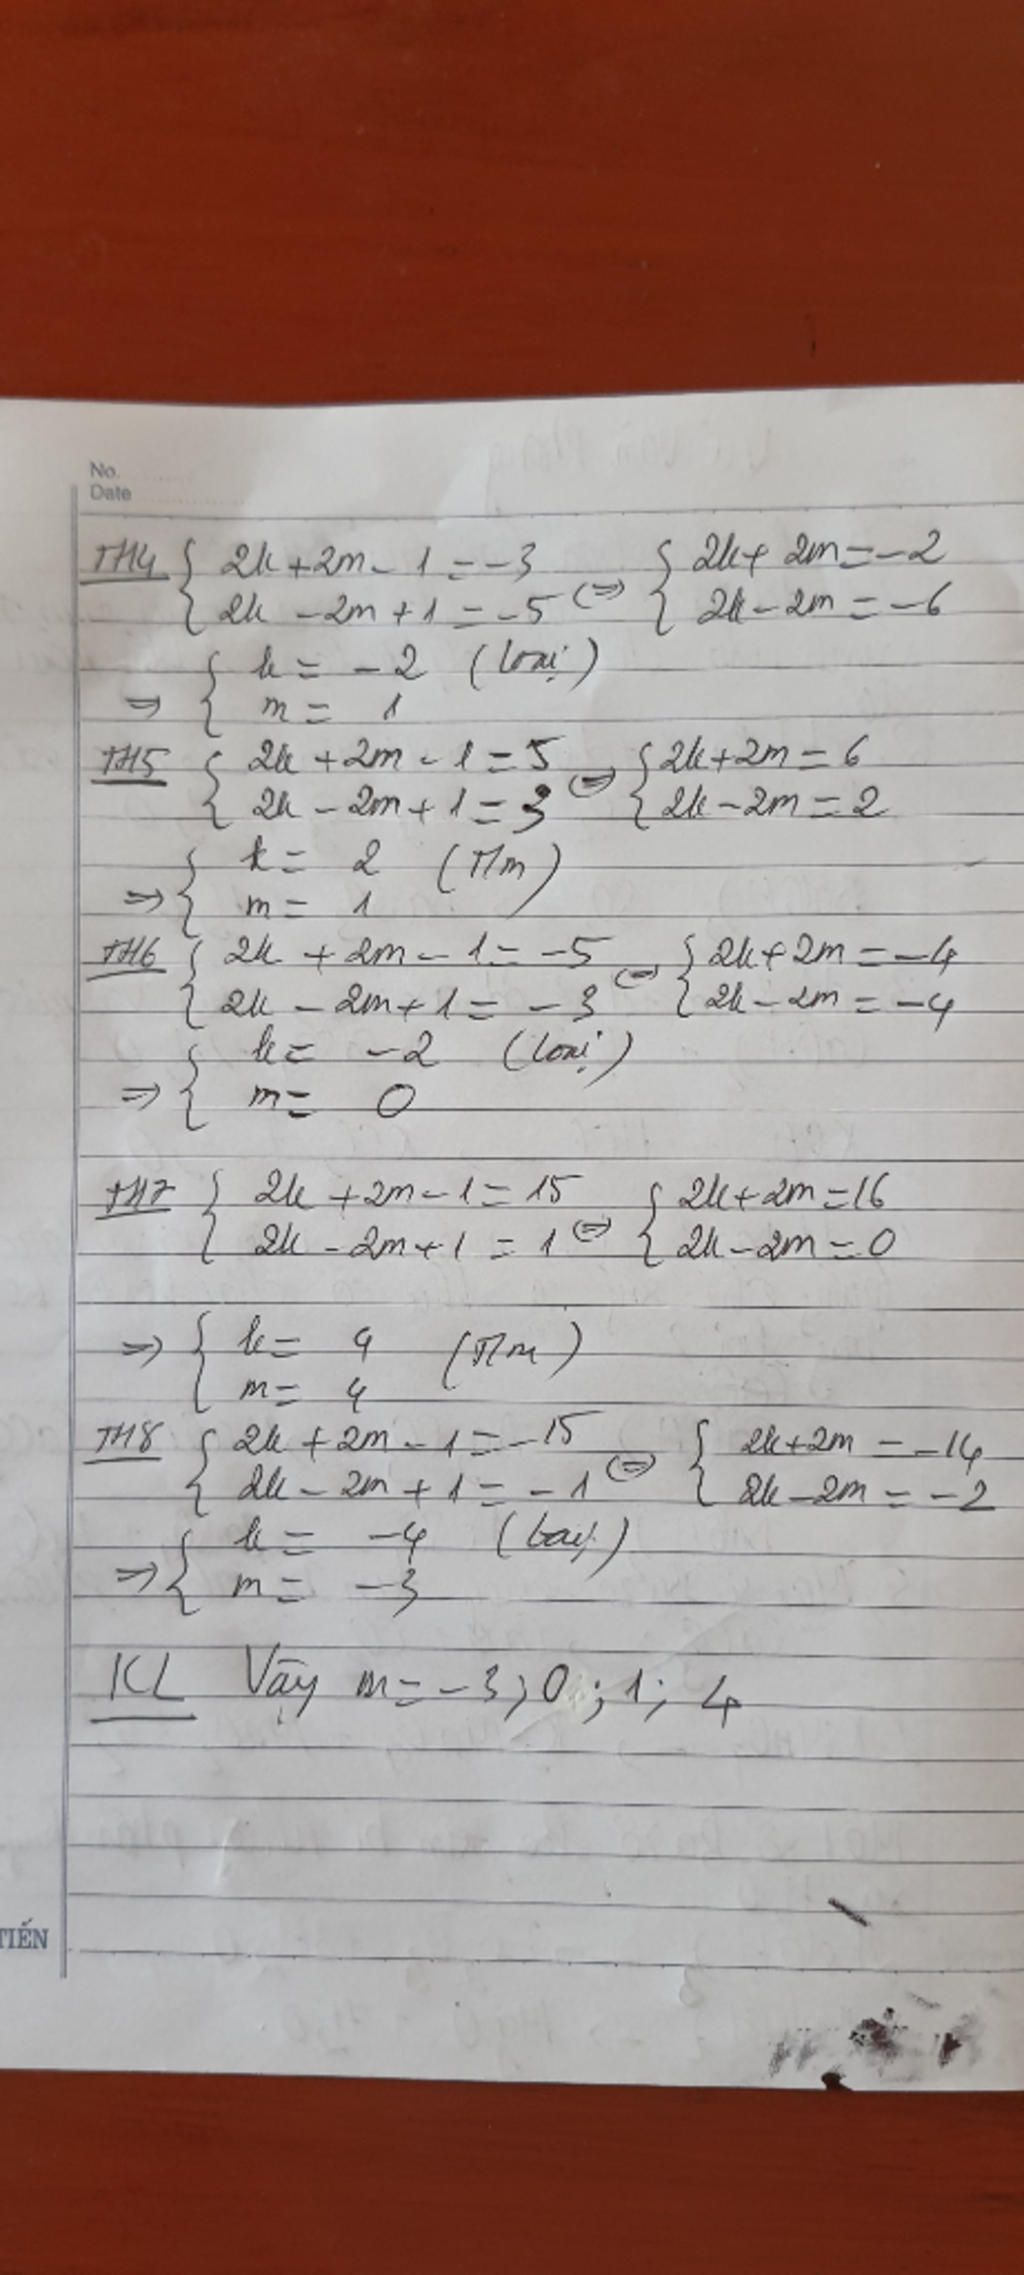 No.
Date
TH4 { 2k + 2m - 1 = -3 (=) { 2k + 2m = -2
2k - 2m + 1 = -5 2k - 2m = -6
=> { k = -2 (loại)
m = 1
TH5 { 2k + 2m - 1 = 5 (=) { 2k + 2m = 6
2k - 2m + 1 = 3 2k - 2m = 2
=> { k = 2 (T/m)
m = 1
TH6 { 2k + 2m - 1 = -5 (=) { 2k + 2m = -4
2k - 2m + 1 = -3 2k - 2m = -4
=> { k = -2 (loại)
m = 0
TH7 { 2k + 2m - 1 = 15 (=) { 2k + 2m = 16
2k - 2m + 1 = 1 2k - 2m = 0
=> { k = 4 (T/m)
m = 4
TH8 { 2k + 2m - 1 = -15 (=) { 2k + 2m = -14
2k - 2m + 1 = -1 2k - 2m = -2
=> { k = -4 (loại)
m = -3
KL Vậy m = -3; 0; 1; 4
TIẾN